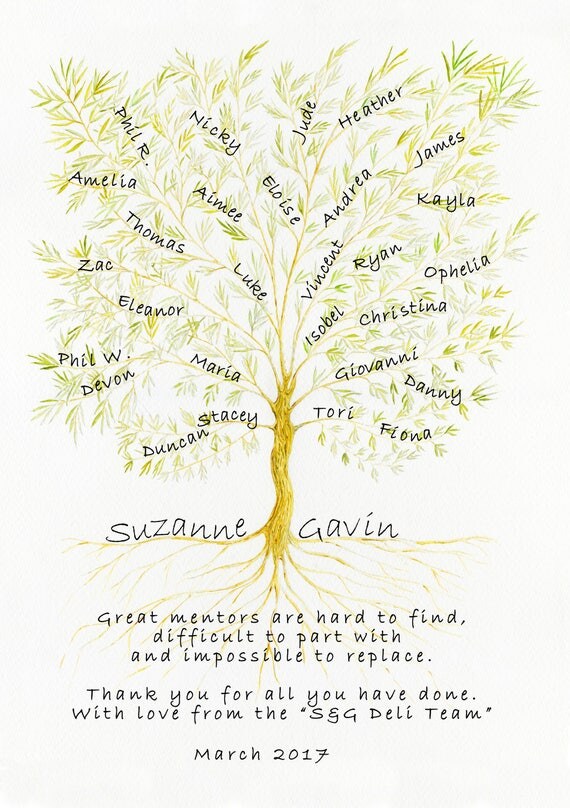 Jude
Heather
Phil R.
Nicky
James
Amelia
Aimee
Eloise
Andrea
Kayla
Thomas
Vincent
Ryan
Zac
Luke
Ophelia
Eleanor
Isobel
Christina
Phil W.
Maria
Giovanni
Devon
Danny
Stacey
Tori
Duncan
Fiona
Suzanne Gavin
Great mentors are hard to find,
difficult to part with
and impossible to replace.
Thank you for all you have done.
With love from the “S&G Deli Team”
March 2017